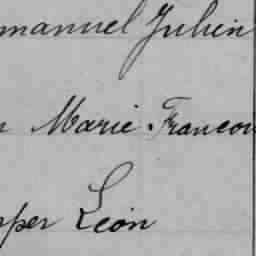 mmanuel Julien
n Marie Francoi
pper Léon